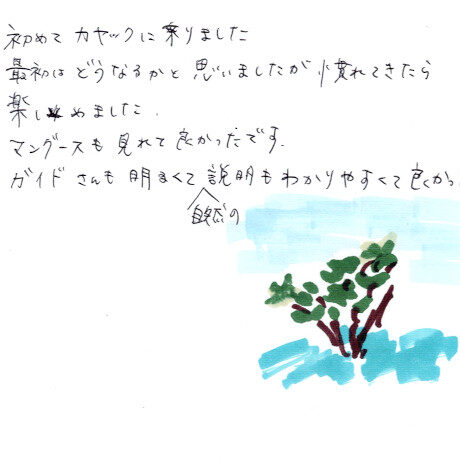 初めて カヤックに 乗りました
最初は どうなるかと 思いましたが 慣れてきたら
楽しめました.
マングースも 見れて 良かったです.
ガイドさんも 明るくて 自然の 説明も わかりやすくて 良かっ